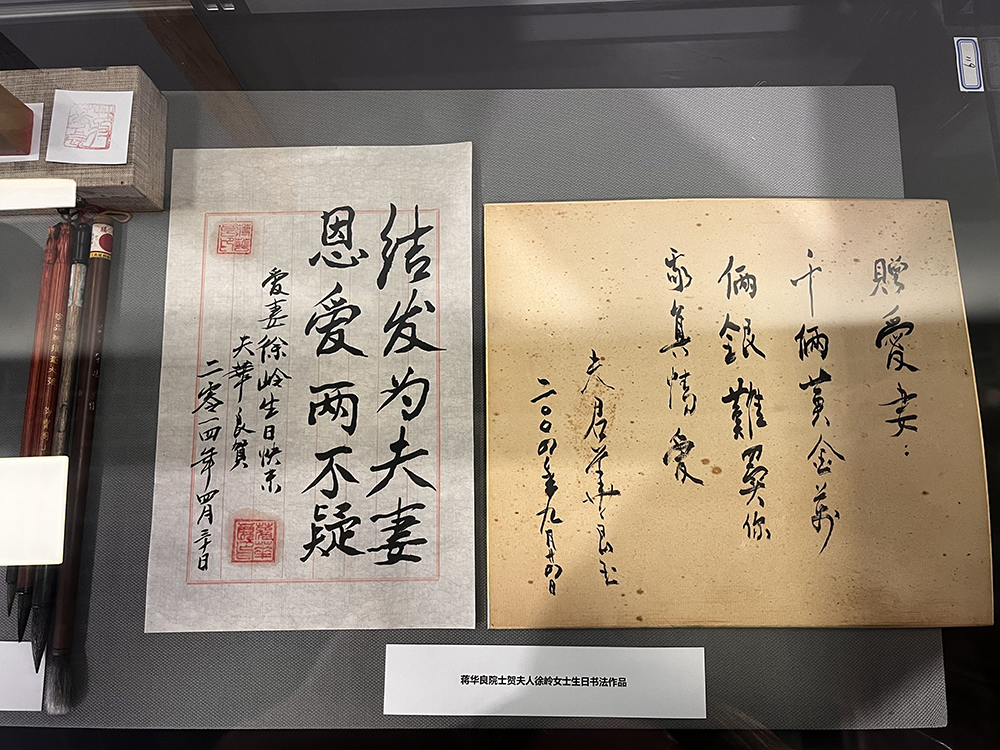 结发为夫妻
恩爱两不疑
爱妻徐岭生日快乐
夫華良贺
二零一四年四月日
贈愛妻：
千俩黄金萬
俩銀難買你
真情愛
夫君華良
二〇〇四年九月廿四日
蒋华良院士贺夫人徐岭女士生日书法作品